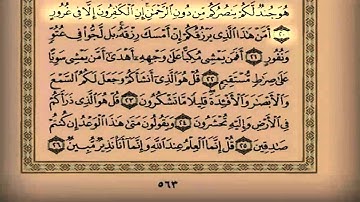 هُوَ جُندٌ لَّكُمْ يَنصُرُكُم مِّن دُونِ الرَّحْمَٰنِ إِنِ الْكَافِرُونَ إِلَّا فِي غُرُورٍ
٢٠ أَمَّنْ هَٰذَا الَّذِي يَرْزُقُكُمْ إِنْ أَمْسَكَ رِزْقَهُ بَل لَّجُّوا فِي عُتُوٍّ
وَنُفُورٍ ٢١ أَفَمَن يَمْشِي مُكِبًّا عَلَىٰ وَجْهِهِ أَهْدَىٰ أَمَّن يَمْشِي سَوِيًّا
عَلَىٰ صِرَاطٍ مُّسْتَقِيمٍ ٢٢ قُلْ هُوَ الَّذِي أَنشَأَكُمْ وَجَعَلَ لَكُمُ السَّمْعَ
وَالْأَبْصَارَ وَالْأَفْئِدَةَ قَلِيلًا مَّا تَشْكُرُونَ ٢٣ قُلْ هُوَ الَّذِي ذَرَأَكُمْ
فِي الْأَرْضِ وَإِلَيْهِ تُحْشَرُونَ ٢٤ وَيَقُولُونَ مَتَىٰ هَٰذَا الْوَعْدُ إِن كُنتُمْ
صَادِقِينَ ٢٥ قُلْ إِنَّمَا الْعِلْمُ عِندَ اللَّهِ وَإِنَّمَا أَنَا نَذِيرٌ مُّبِينٌ ٢٦
٥٦٣